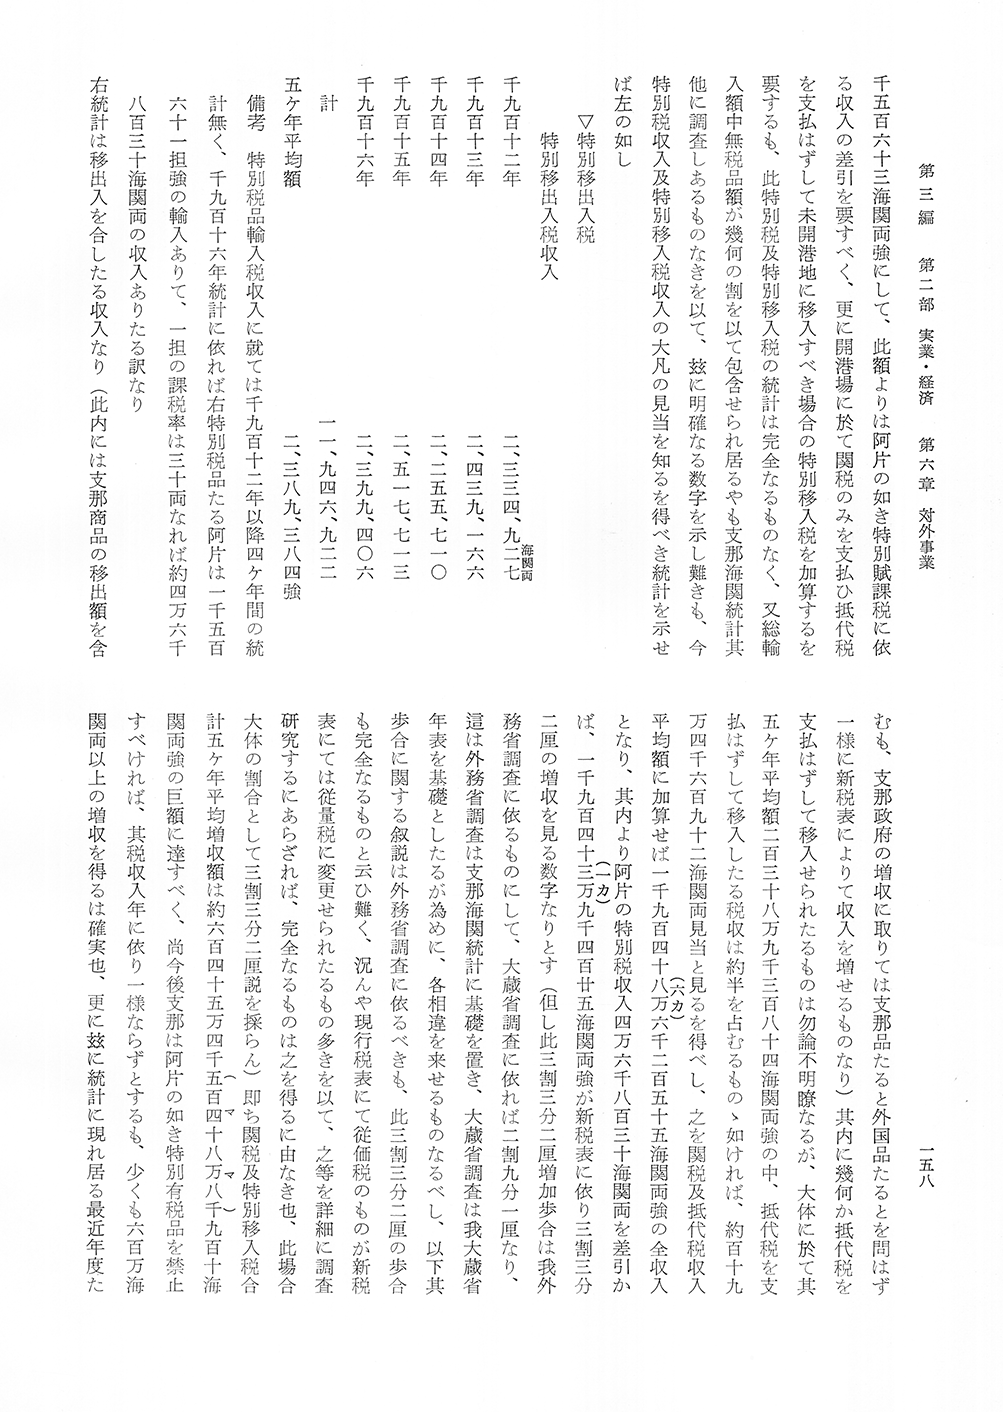 第三編　第二部　実業・経済　第六章　対外事業
一五八
千五百六十三海関両強にして、此額よりは阿片の如き特別賦課税に依
る収入の差引を要すべく、更に開港場に於て関税のみを支払ひ抵代税
を支払はずして未開港地に移入すべき場合の特別移入税を加算するを
要するも、此特別税及特別移入税の統計は完全なるものなく、又総輸
入額中無税品額が幾何の割を以て包含せられ居るやも支那海関統計其
他に調査しあるものなきを以て、玆に明確なる数字を示し難きも、今
特別税収入及特別移入税収入の大凡の見当を知るを得べき統計を示せ
ば左の如し
▽特別移出入税
特別移出入税収入
千九百十二年　二、三三四、九二七海関両
千九百十三年　二、四三九、一六六
千九百十四年　二、二五五、七一〇
千九百十五年　二、五一七、七一三
千九百十六年　二、三九九、四〇六
計　一一、九四六、九二二
五ケ年平均額　二、三八九、三八四強
備考　特別税品輸入税収入に就ては千九百十二年以降四ケ年間の統
計無く、千九百十六年統計に依れば右特別税品たる阿片は一千五百
六十一担強の輸入ありて、一担の課税率は三十両なれば約四万六千
八百三十海関両の収入ありたる訳なり
右統計は移出入を合したる収入なり（此内には支那商品の移出額を含
むも、支那政府の増収に取りては支那品たると外国品たるとを問はず
一様に新税表によりて収入を増せるものなり）其内に幾何か抵代税を
支払はずして移入せられたるものは勿論不明瞭なるが、大体に於て其
五ケ年平均額二百三十八万九千三百八十四海関両強の中、抵代税を支
払はずして移入したる税収は約半を占むるものゝ如ければ、約百十九
万四千六百九十二海関両見当と見るを得べし、之を関税及抵代税収入
平均額に加算せば一千九百四十八万六千二百五十五海関両強の全収入
（六カ）
となり、其内より阿片の特別税収入四万六千八百三十海関両を差引か
（一カ）
ば、一千九百四十三万九千四百廿五海関両強が新税表に依り三割三分
二厘の増収を見る数字なりとす（但し此三割三分二厘増加歩合は我外
務省調査に依るものにして、大蔵省調査に依れば二割九分一厘なり、
這は外務省調査は支那海関統計に基礎を置き、大蔵省調査は我大蔵省
年表を基礎としたるが為めに、各相違を来せるものなるべし、以下其
歩合に関する叙説は外務省調査に依るべきも、此三割三分二厘の歩合
も完全なるものと云ひ難く、況んや現行税表にて従価税のものが新税
表にては従量税に変更せられたるもの多きを以て、之等を詳細に調査
研究するにあらざれば、完全なるものは之を得るに由なき也、此場合
大体の割合として三割三分二厘説を採らん）即ち関税及特別移入税合
（マ　マ）
計五ケ年平均増収額は約六百四十五万四千五百四十八万八千九百十海
関両強の巨額に達すべく、尚今後支那は阿片の如き特別有税品を禁止
すべければ、其税収入年に依り一様ならずとするも、少くも六百万海
関両以上の増収を得るは確実也、更に玆に統計に現れ居る最近年度た